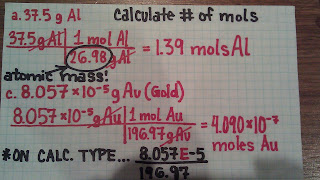 a. 37.5 g Al Calculate # of mols
37.5 g Al 1 mol Al = 1.39 mols Al
26.98 g Al
atomic mass!
c. 8.057 × 10⁻⁵ g Au (Gold)
8.057 × 10⁻⁵ g Au 1 mol Au = 4.090 × 10⁻⁷
196.97 g Au moles Au
*ON CALC. TYPE... 8.057E-5
196.97